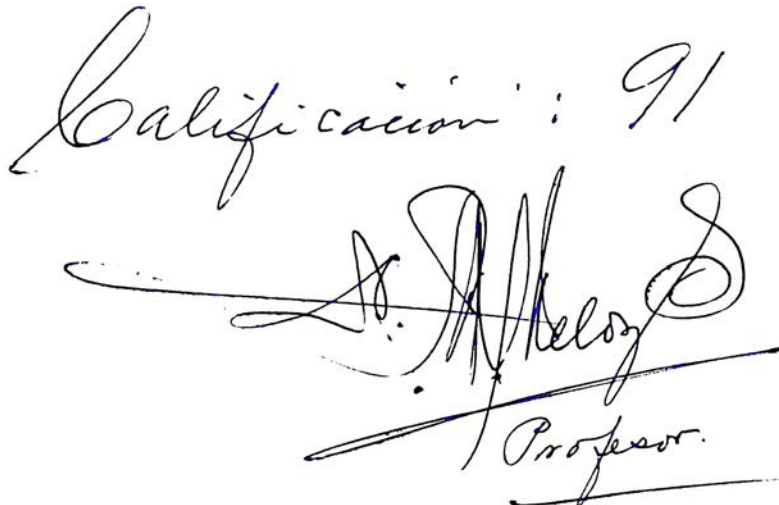 Calificación : 91
Profesor.